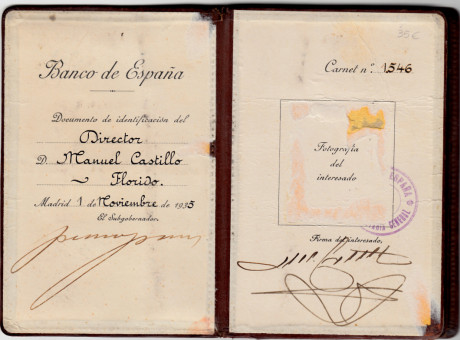 Banco de España
Documento de identificación del
Director
D. Manuel Castillo
Florido.
Madrid 1 de Noviembre de 1935
El Subgobernador,
35€
Carnet nº. 1.546
Fotografía
del
interesado
ESPAÑA
GENERAL
Firma del interesado,